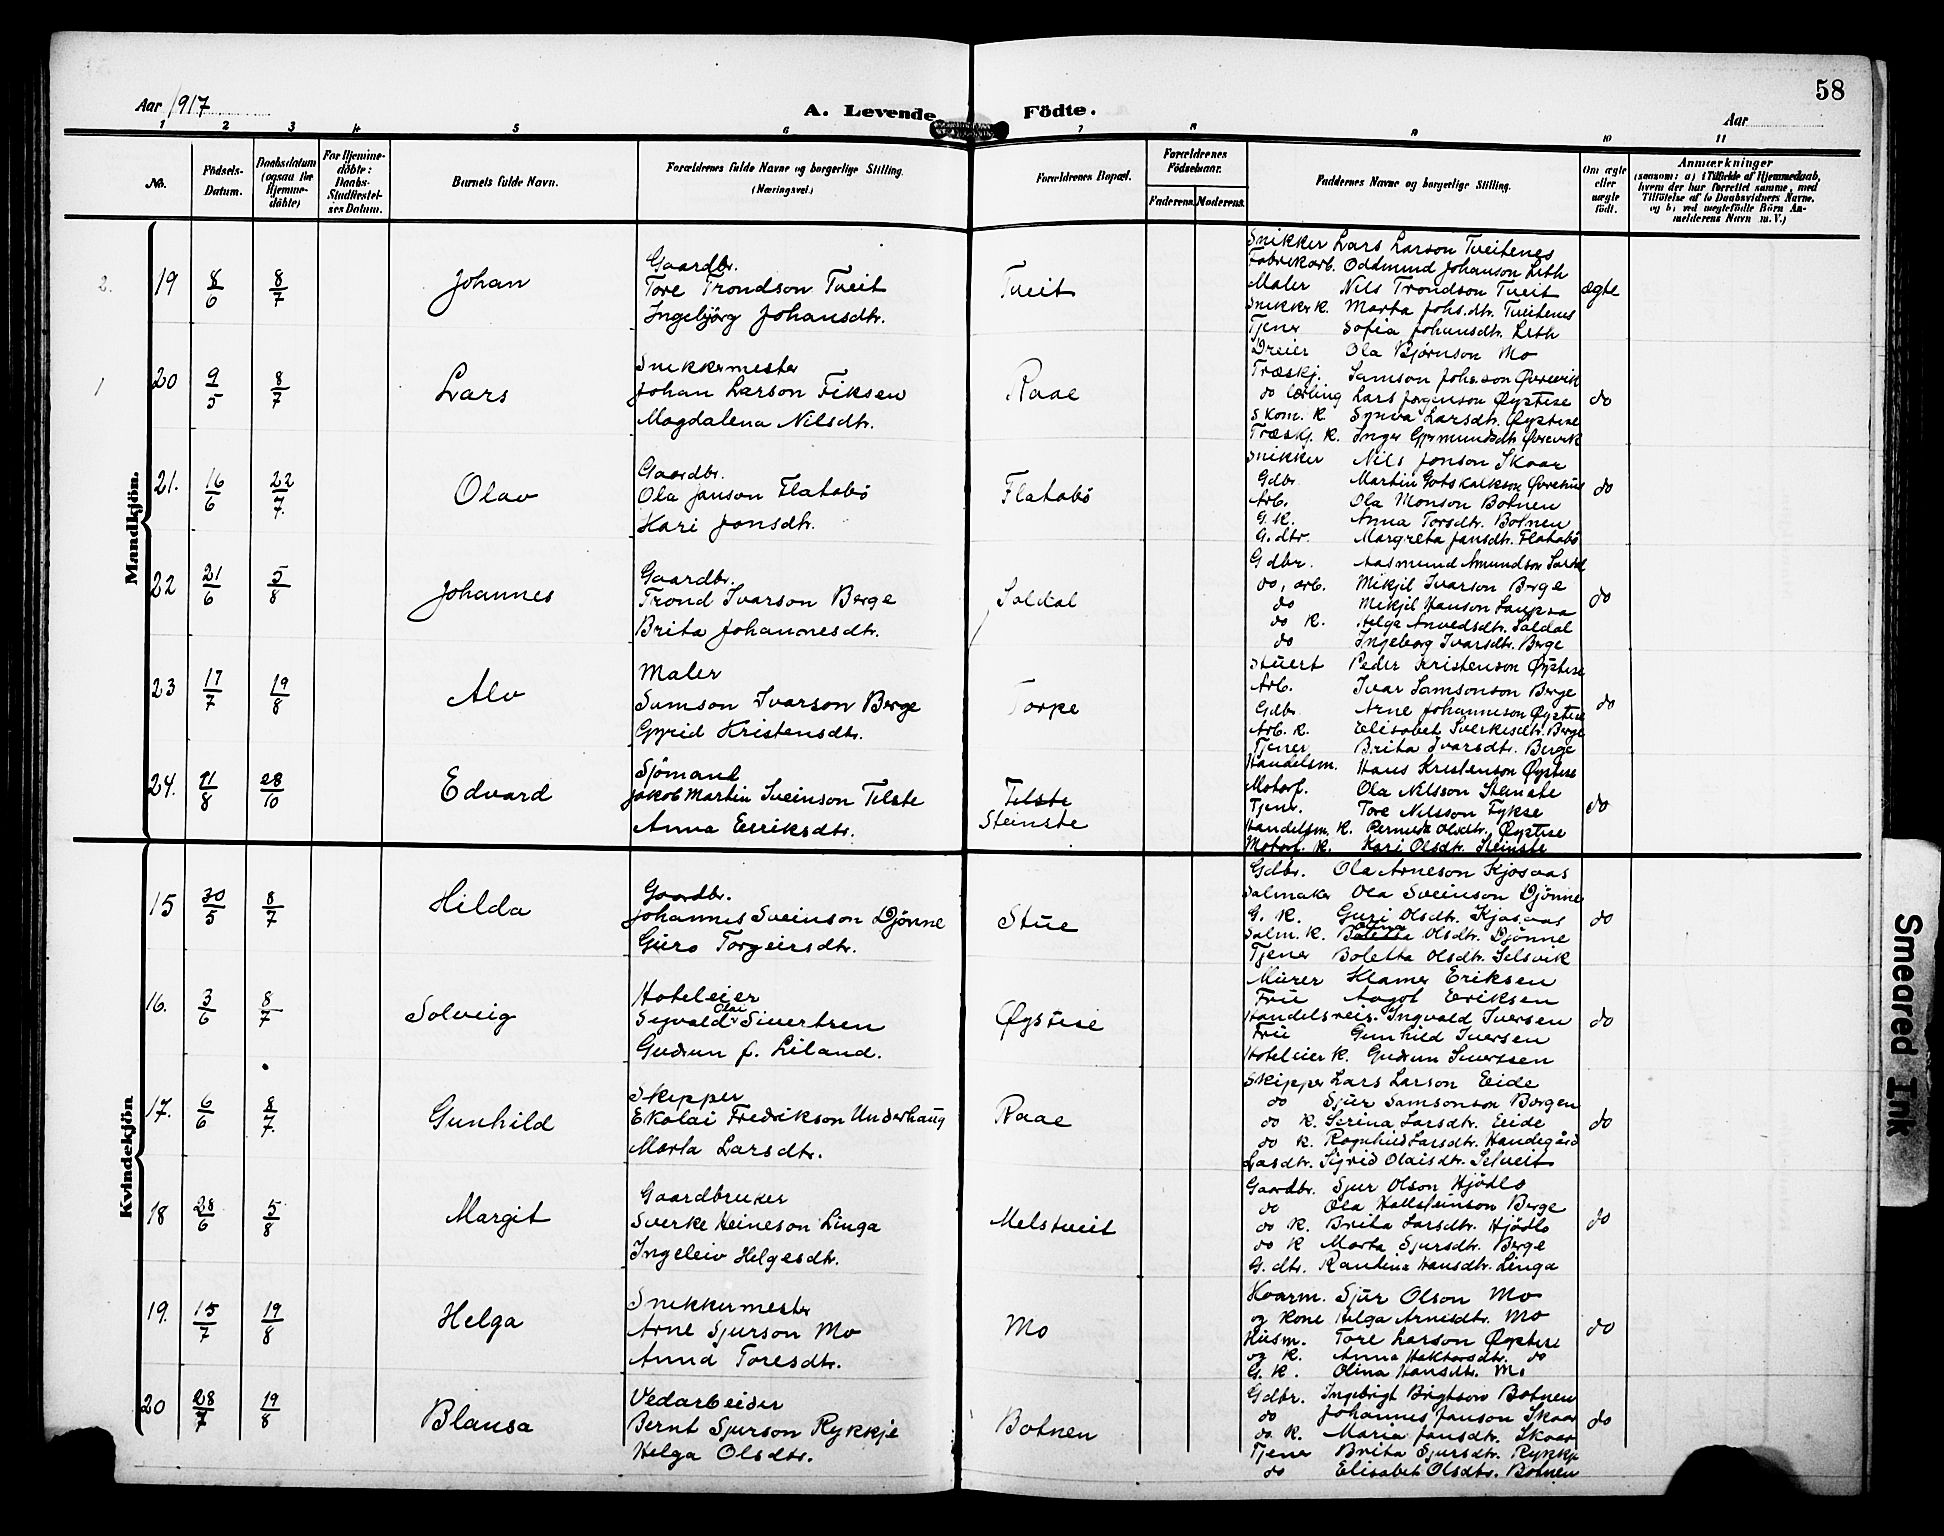 58
Aar 1917
A. Levende Födte.
Aar
1 2 3 4 5 6 7 8 9 10 11
No.
Födsels-Datum.
Daabsdatum (ogsaa for Hjemme-döbte)
For Hjemme-döbte: Daabs-Stadfæstel-ses Datum.
Barnets fulde Navn.
Forældrenes fulde Navne og borgerlige Stilling. (Næringsvei.)
Forældrenes Bopæl.
Forældrenes Födselsaar.
Faderens. Moderens.
Faddernes Navne og borgerlige Stilling.
Om ægte eller uægte födt.
Anmærkninger
(saasom: a) i Tilfælde af Hjemmedaab,
hvem der har forrettet samme, med
Tilföielse af to Daabsvidners Navne,
og b) ved uægtefödte Börn An-
melderens Navn m. V.)
Mandkjön.
2. 19 8/6 8/7 Johan
Gaardbr.
Tore Trondson Tveit
Ingebjörg Johansdtr.
Tveit
Snikker Lars Larson Tveitenes
Fabrikarb. Oddmund Johanson Leth
Maler Nils Trondson Tveit
Snikker k. Marta Johs.dtr. Tveitenes
Tjener Sofia Johansdtr. Leth
ægte
1 20 9/5 8/7 Lars
Snikkermester
Johan Larson Fiksen
Magdalena Nilsdtr.
Raae
Dreier Ola Bjørnson Mo
Træskj. Samson Johs.son Øvrevik
do lærling Lars Jørgenson Øystese
Skom. k. Synva Larsdtr. Øystese
Træskj. k. Inger Gjermundsdtr. Øvrevik
do
21. 16/6 22/7. Olav
Gaardbr.
Ola Janson Flatabö
Kari Jonsdtr.
Flatabö
Snikker Nils Jonson Skaar
Gdbr. Martin Gotskalkson Øvrehus
Arb. Ola Monson Botnen
G. K. Anna Torsdtr. Botnen
G. dtr. Margreta Jansdtr. Flatabö
do
22 21/6 5/8 Johannes
Gaardbr.
Trond Ivarson Berge
Brita Johannesdtr.
Soldal
Gdbr. Aasmund Amundson
do, arb. Mikjil Ivarson Berge
do Mikjil Hanson
do K. Helga Anvedsdtr. Soldal
do Ingeborg Ivarsdtr. Berge
do
23 17/7 19/8 Alv
Maler
Samson Ivarson Berge
Gyrid Kristensdtr.
Torpe
Stuert Peder Kristenson Øystese
Arb. Ivar Samsonson Berge
Gdbr. Arne Johanneson Øystese
Arb. k. Elisabet Sverkesdtr. Berge
Tjener Brita Ivarsdtr. Berge
do
24. 11/8 28/10 Edvard
Sjömand
Jakob Martin Sveinson Telste
Anna Eeriksdtr.
Telste
Steinstø
Handelsm. Hans Kristenson Øystese
Motorf. Ola Nilsson Steinstø
Tjener. Tore Nilsson Fykse
Handelsm. K. Pernela Olsdtr. Øystese
Motorf. k. Kari Olsdtr. Steinstø
do
Kvindekjön
15 30/5 8/7 Hilda
Gaardbr.
Johannes Sveinson Djönne
Guro Torgeirsdtr.
Stue
Gdbr. Ola Arneson Kjosaas
Salmaker Ola Sveinson Djönne
G. K. Guri Olsdtr. Kjosaas
Salm. K. Boletta Olsdtr. Djönne
Tjener Boletta Olsdtr. Selsvik
do
16. 3/6 8/7 Solveig
Hoteleier
Sigvald Olai Sivertsen
Gudrun f. Liland.
Øystese
Murer Klamer Eriksen
Fru Aagot Eriksen
Handelsreis. Ingvald Iversen
Fru Gunhild Iversen
Hoteleier K. Gudrun Sivertsen
do
17. 6/6 8/7. Gunhild
Skipper
Ekolai Fredrikson Underhaug
Marta Larsdtr.
Raae
Skipper Lars Larson Eide
do Sjur Samsonson Børgen
do K. Serina Larsdtr. Eide
do K. Ragnhild Larsdtr. Handegård
Lasdtr. Sigrid Olaisdtr. Selveit
do
18 28/6 5/8 Margit
Gaardbruker
Sverke Heineson Linga
Ingeleiv Helgesdtr.
Melstveit
Gaardbr. Sjur Olson Hjödlo
do Ola Hallsteinson Berge
do K. Brita Larsdtr. Hjödlo
do K Marta Sjursdtr. Berge
G. dtr. Rantina Hansdtr. Linga
do
19. 15/7 19/8 Helga
Snekkermester
Arne Sjurson Mo
Anna Toresdtr.
Mo
Kaarm. Sjur Olson Mo
og kone Helga Arnesdtr. Mo
Husm. Tore Larson Øystese
og K. Anna Haktorsdtr. do
G. K. Olina Hansdtr. Mo
do
20 28/7 19/8 Blansa
Vedarbeider
Bernt Sjurson Rykkje
Helga Olsdtr.
Botnen
Gdbr. Ingebrigt Brigtson Botnen
do Johannes Janson Skaar
do. K. Maria Jansdtr. Skaar
Tjener Brita Sjursdtr. Rykkje
do Elisabet Olsdtr. Botnen
do
Smeared Ink